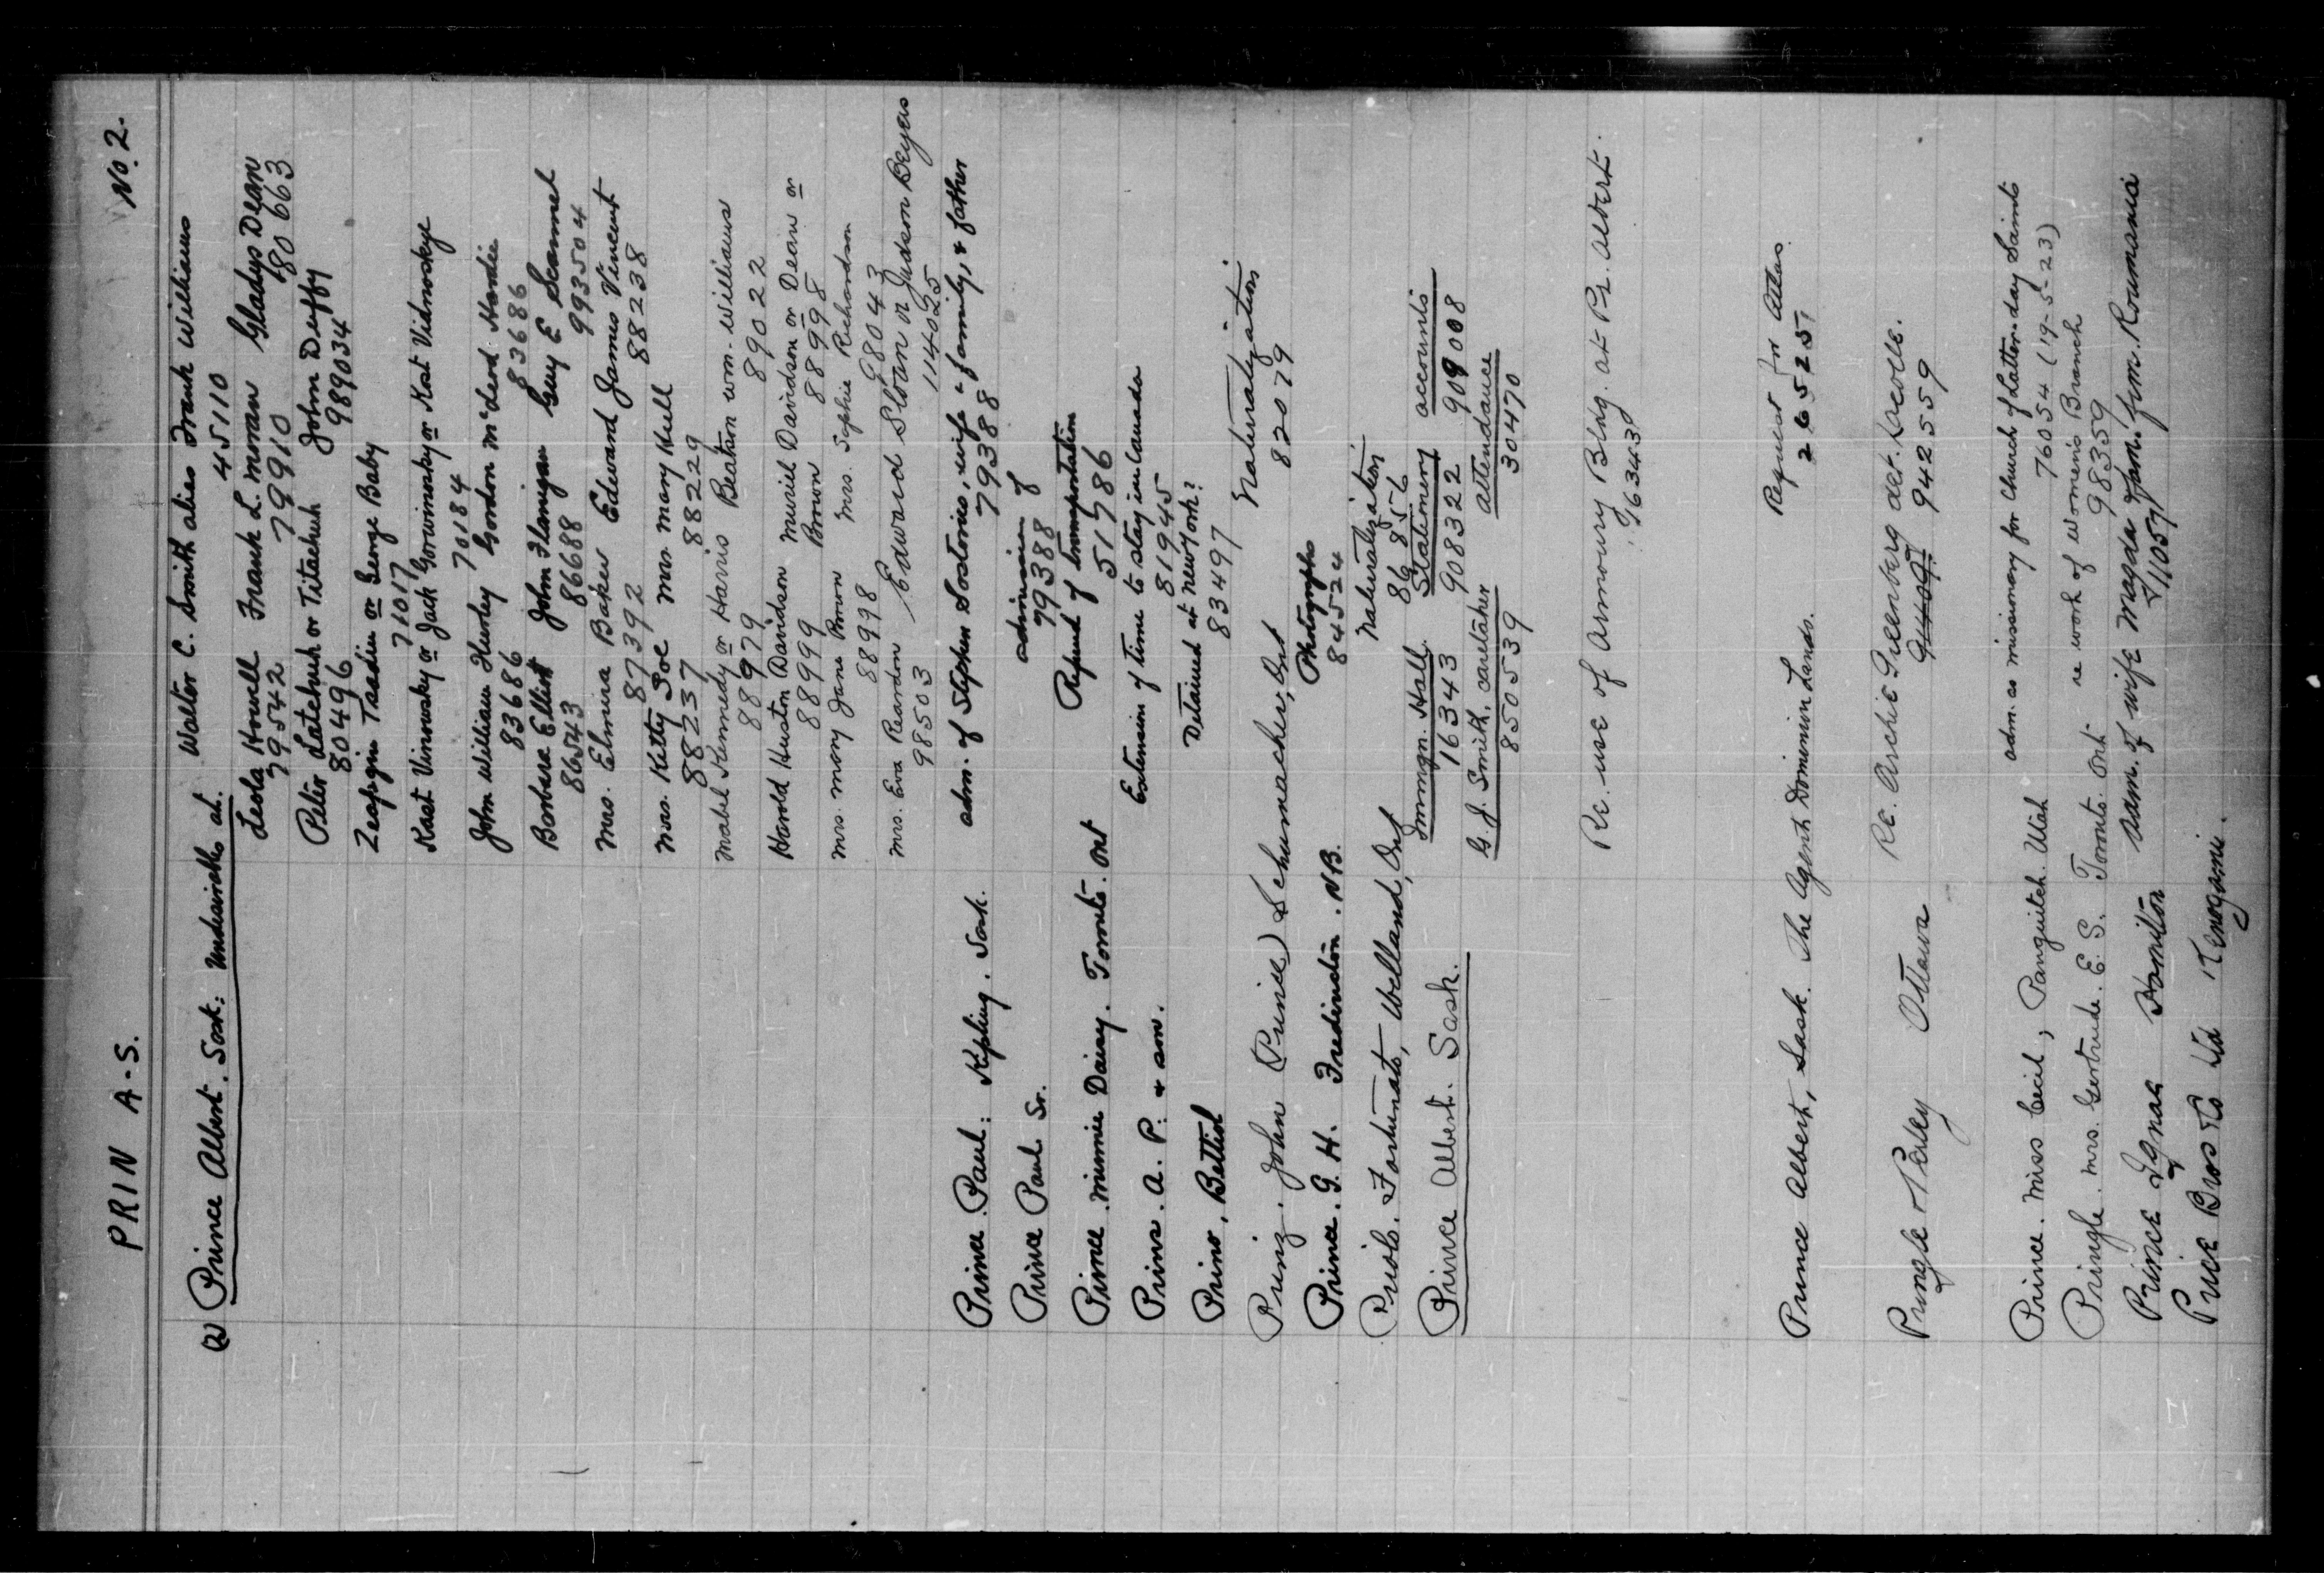 PRIN A-S. No. 2.
(2) Prince Albert. Sask: Undesirables at. Walter C. Smith alias Frank Williams
45110
Leola Howell Frank L. Moran Gladys Dean
79542 79910 80663
Peter Latchuk or Titachuk John Duffy
80496 989034
Zeapgin Tasdin or George Baby
71017
Kast Vinowsky or Jack Gorwinosky or Kost Vidnoskye
70184
John William Hursley Gordon McLeod Hardie
83686 83686
Barbara Elliott John Flanigan Guy E Scammel
86543 86688 9935504
Mrs. Elmira Baker Edward James Vincent
87392 88238
Mrs. Kitty Poe Mrs Mary Hull
88237 88229
Mabel Kennedy or Harris Beaton Wm. Williams
88979 89022
Harold Huston Davidson Muriel Davidson or Dean or
88999 Brown 88998
Mrs. Mary Jane Brown Mrs. Sophie Richardson
88998 98043
Mrs. Eva Reardon Edward Sloan or Judson Beyea
98503 114025
Prince. Paul: Kipling. Sask. adm. of Stephen Sostorics, wife & family, & father
79388
Prince Paul Sr. admission of
79388
Prince. Minnie Daisy. Toronto. Ont Refund of transportation
51786
Prins. A. P. & son. Extension of time to stay in Canada
81945
Prino, Bettiol Detained at New York?
83497
Prinz. John (Prince) Schumacher, Ont Naturalization
82079
Prince. G. H. Fredericton. N.B. Photographs
84524
Priolo. Fortunato, Welland, Ont Naturalization
86856
Prince Albert. Sask. Immgn. Hall Statement accounts
16343 908322 909008
G. J. Smith, caretaker attendance
850539 30470
Re. use of Armoury Bldg. at Pr. Albert.
16343
Prince Albert, Sask. The Agent Dominion Lands. Request for Atlas
265251
Pringle & Perley Ottawa Re. Archie Greenberg det. Lacolle.
942559
Prince. Miss Cecil, Panguitch. Utah adm. as missionary for Church of Latter-day Saints
76054 (19-5-23)
Pringle. Mrs. Gertrude. E. S. Toronto. Ont. re work of Women's Branch
98359
Prince Ignac Hamilton adm. of wife Magda & fam. from Roumania
111057
Price Bros Co Ltd Kenogami.